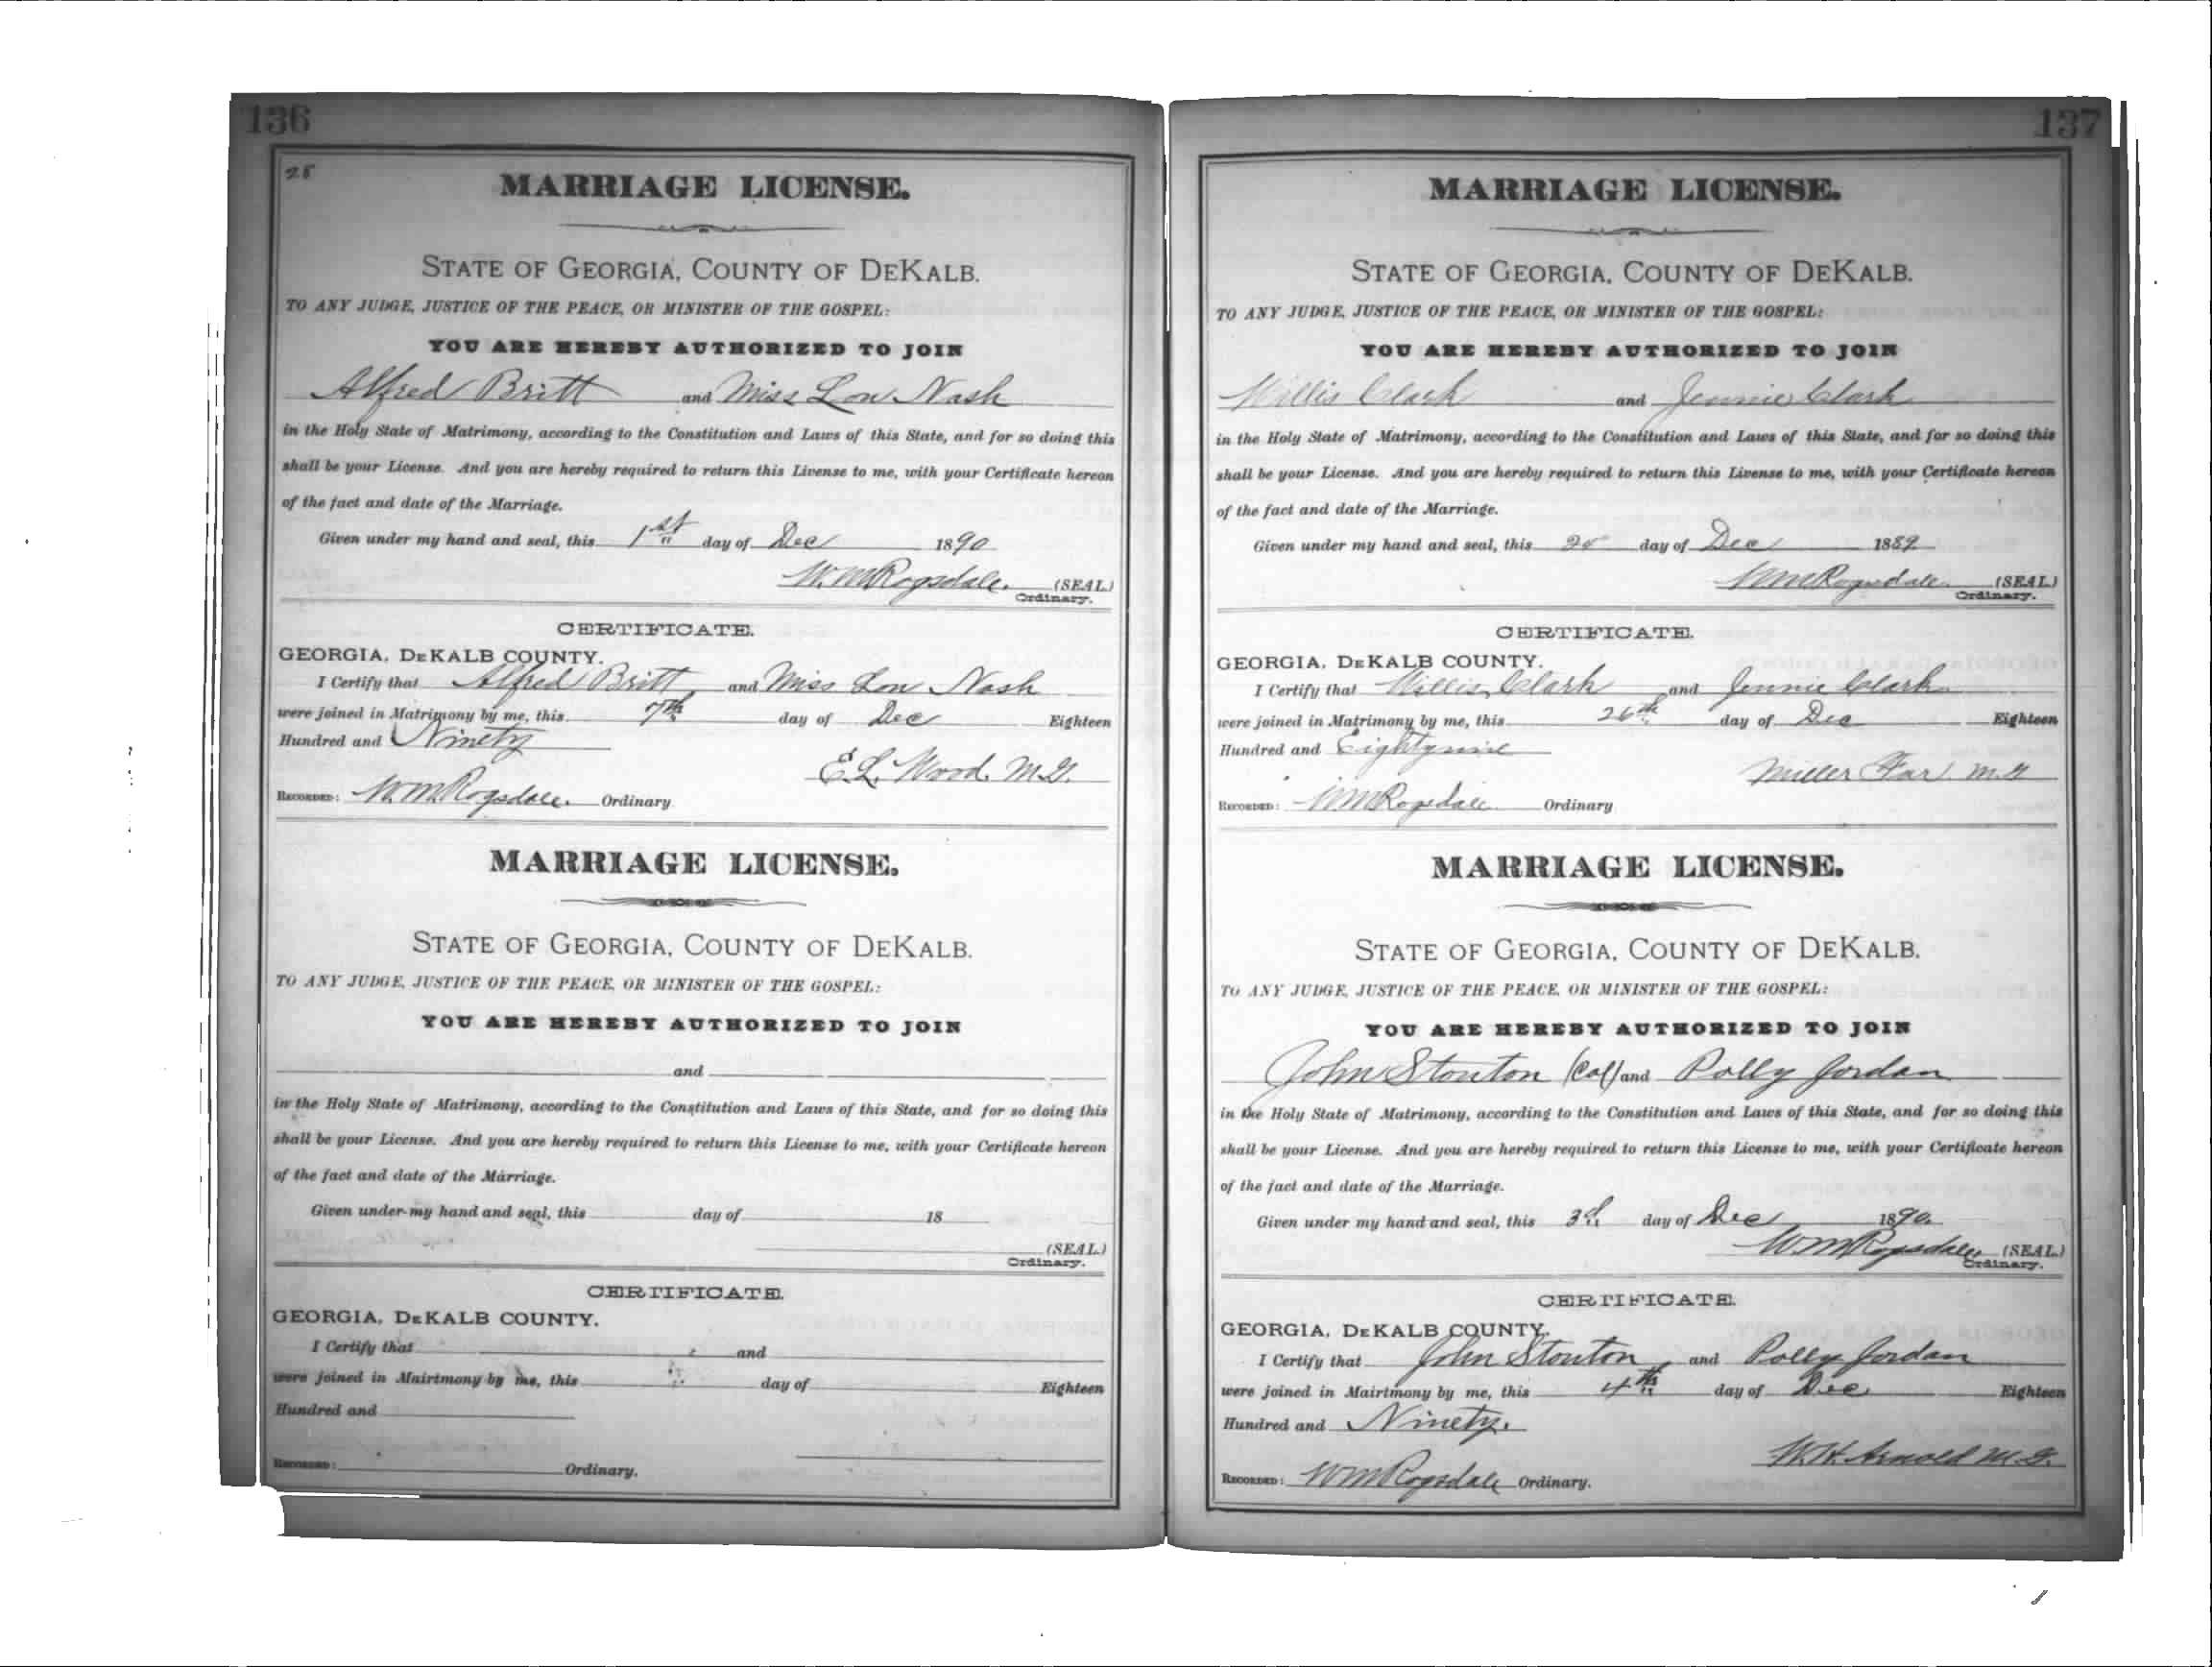 136
28
MARRIAGE LICENSE.
STATE OF GEORGIA, COUNTY OF DEKALB.
TO ANY JUDGE, JUSTICE OF THE PEACE, OR MINISTER OF THE GOSPEL:
YOU ARE HEREBY AUTHORIZED TO JOIN
Alfred Britt and Miss Lou Nash
in the Holy State of Matrimony, according to the Constitution and Laws of this State, and for so doing this
shall be your License. And you are hereby required to return this License to me, with your Certificate hereon
of the fact and date of the Marriage.
Given under my hand and seal, this 1st day of Dec 1890
W.M. Ragsdale. (SEAL)
Ordinary.
CERTIFICATE.
GEORGIA, DEKALB COUNTY.
I Certify that Alfred Britt and Miss Lou Nash
were joined in Matrimony by me, this 7th day of Dec Eighteen
Hundred and Ninety
E.L. Wood. M.G.
RECORDED: W.M. Ragsdale. Ordinary
MARRIAGE LICENSE.
STATE OF GEORGIA, COUNTY OF DEKALB.
TO ANY JUDGE, JUSTICE OF THE PEACE, OR MINISTER OF THE GOSPEL:
YOU ARE HEREBY AUTHORIZED TO JOIN
and
in the Holy State of Matrimony, according to the Constitution and Laws of this State, and for so doing this
shall be your License. And you are hereby required to return this License to me, with your Certificate hereon
of the fact and date of the Marriage.
Given under my hand and seal, this day of 18
(SEAL)
Ordinary.
CERTIFICATE.
GEORGIA, DEKALB COUNTY.
I Certify that and
were joined in Mairtmony by me, this day of Eighteen
Hundred and
RECORDED: Ordinary.
137
MARRIAGE LICENSE.
STATE OF GEORGIA, COUNTY OF DEKALB.
TO ANY JUDGE, JUSTICE OF THE PEACE, OR MINISTER OF THE GOSPEL:
YOU ARE HEREBY AUTHORIZED TO JOIN
Willis Clark and Jennie Clark
in the Holy State of Matrimony, according to the Constitution and Laws of this State, and for so doing this
shall be your License. And you are hereby required to return this License to me, with your Certificate hereon
of the fact and date of the Marriage.
Given under my hand and seal, this day of Dec 1889
W M Ragsdale (SEAL)
Ordinary.
CERTIFICATE.
GEORGIA, DEKALB COUNTY.
I Certify that Willis Clark and Jennie Clark
were joined in Matrimony by me, this 26th day of Dec Eighteen
Hundred and Eightynine
Miller Far M.G
RECORDED: W M Ragsdale Ordinary
MARRIAGE LICENSE.
STATE OF GEORGIA, COUNTY OF DEKALB.
TO ANY JUDGE, JUSTICE OF THE PEACE, OR MINISTER OF THE GOSPEL:
YOU ARE HEREBY AUTHORIZED TO JOIN
John Stonton (Col) and Polly Jordan
in the Holy State of Matrimony, according to the Constitution and Laws of this State, and for so doing this
shall be your License. And you are hereby required to return this License to me, with your Certificate hereon
of the fact and date of the Marriage.
Given under my hand and seal, this 3d day of Dec 1890.
W M Ragsdale (SEAL)
Ordinary.
CERTIFICATE.
GEORGIA, DEKALB COUNTY.
I Certify that John Stonton and Polly Jordan
were joined in Mairtmony by me, this 4th day of Dec Eighteen
Hundred and Ninety.
W.H. Arnold M.G.
RECORDED: W M Ragsdale Ordinary.